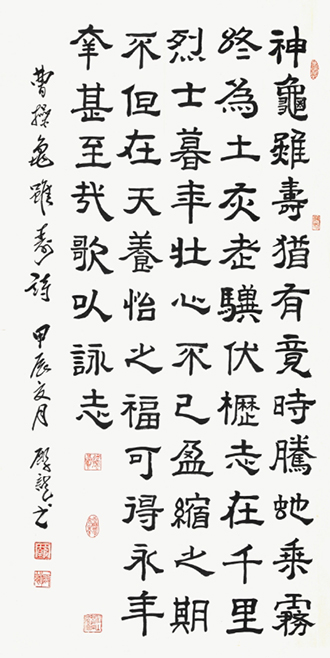 神龜雖壽猶有竟時騰虵乘霧
終為土灰老驥伏櫪志在千里
烈士暮年壯心不已盈縮之期
不但在天養怡之福可得永年
幸甚至哉歌以詠志
曹操龜雖壽詩 甲辰夏月 书